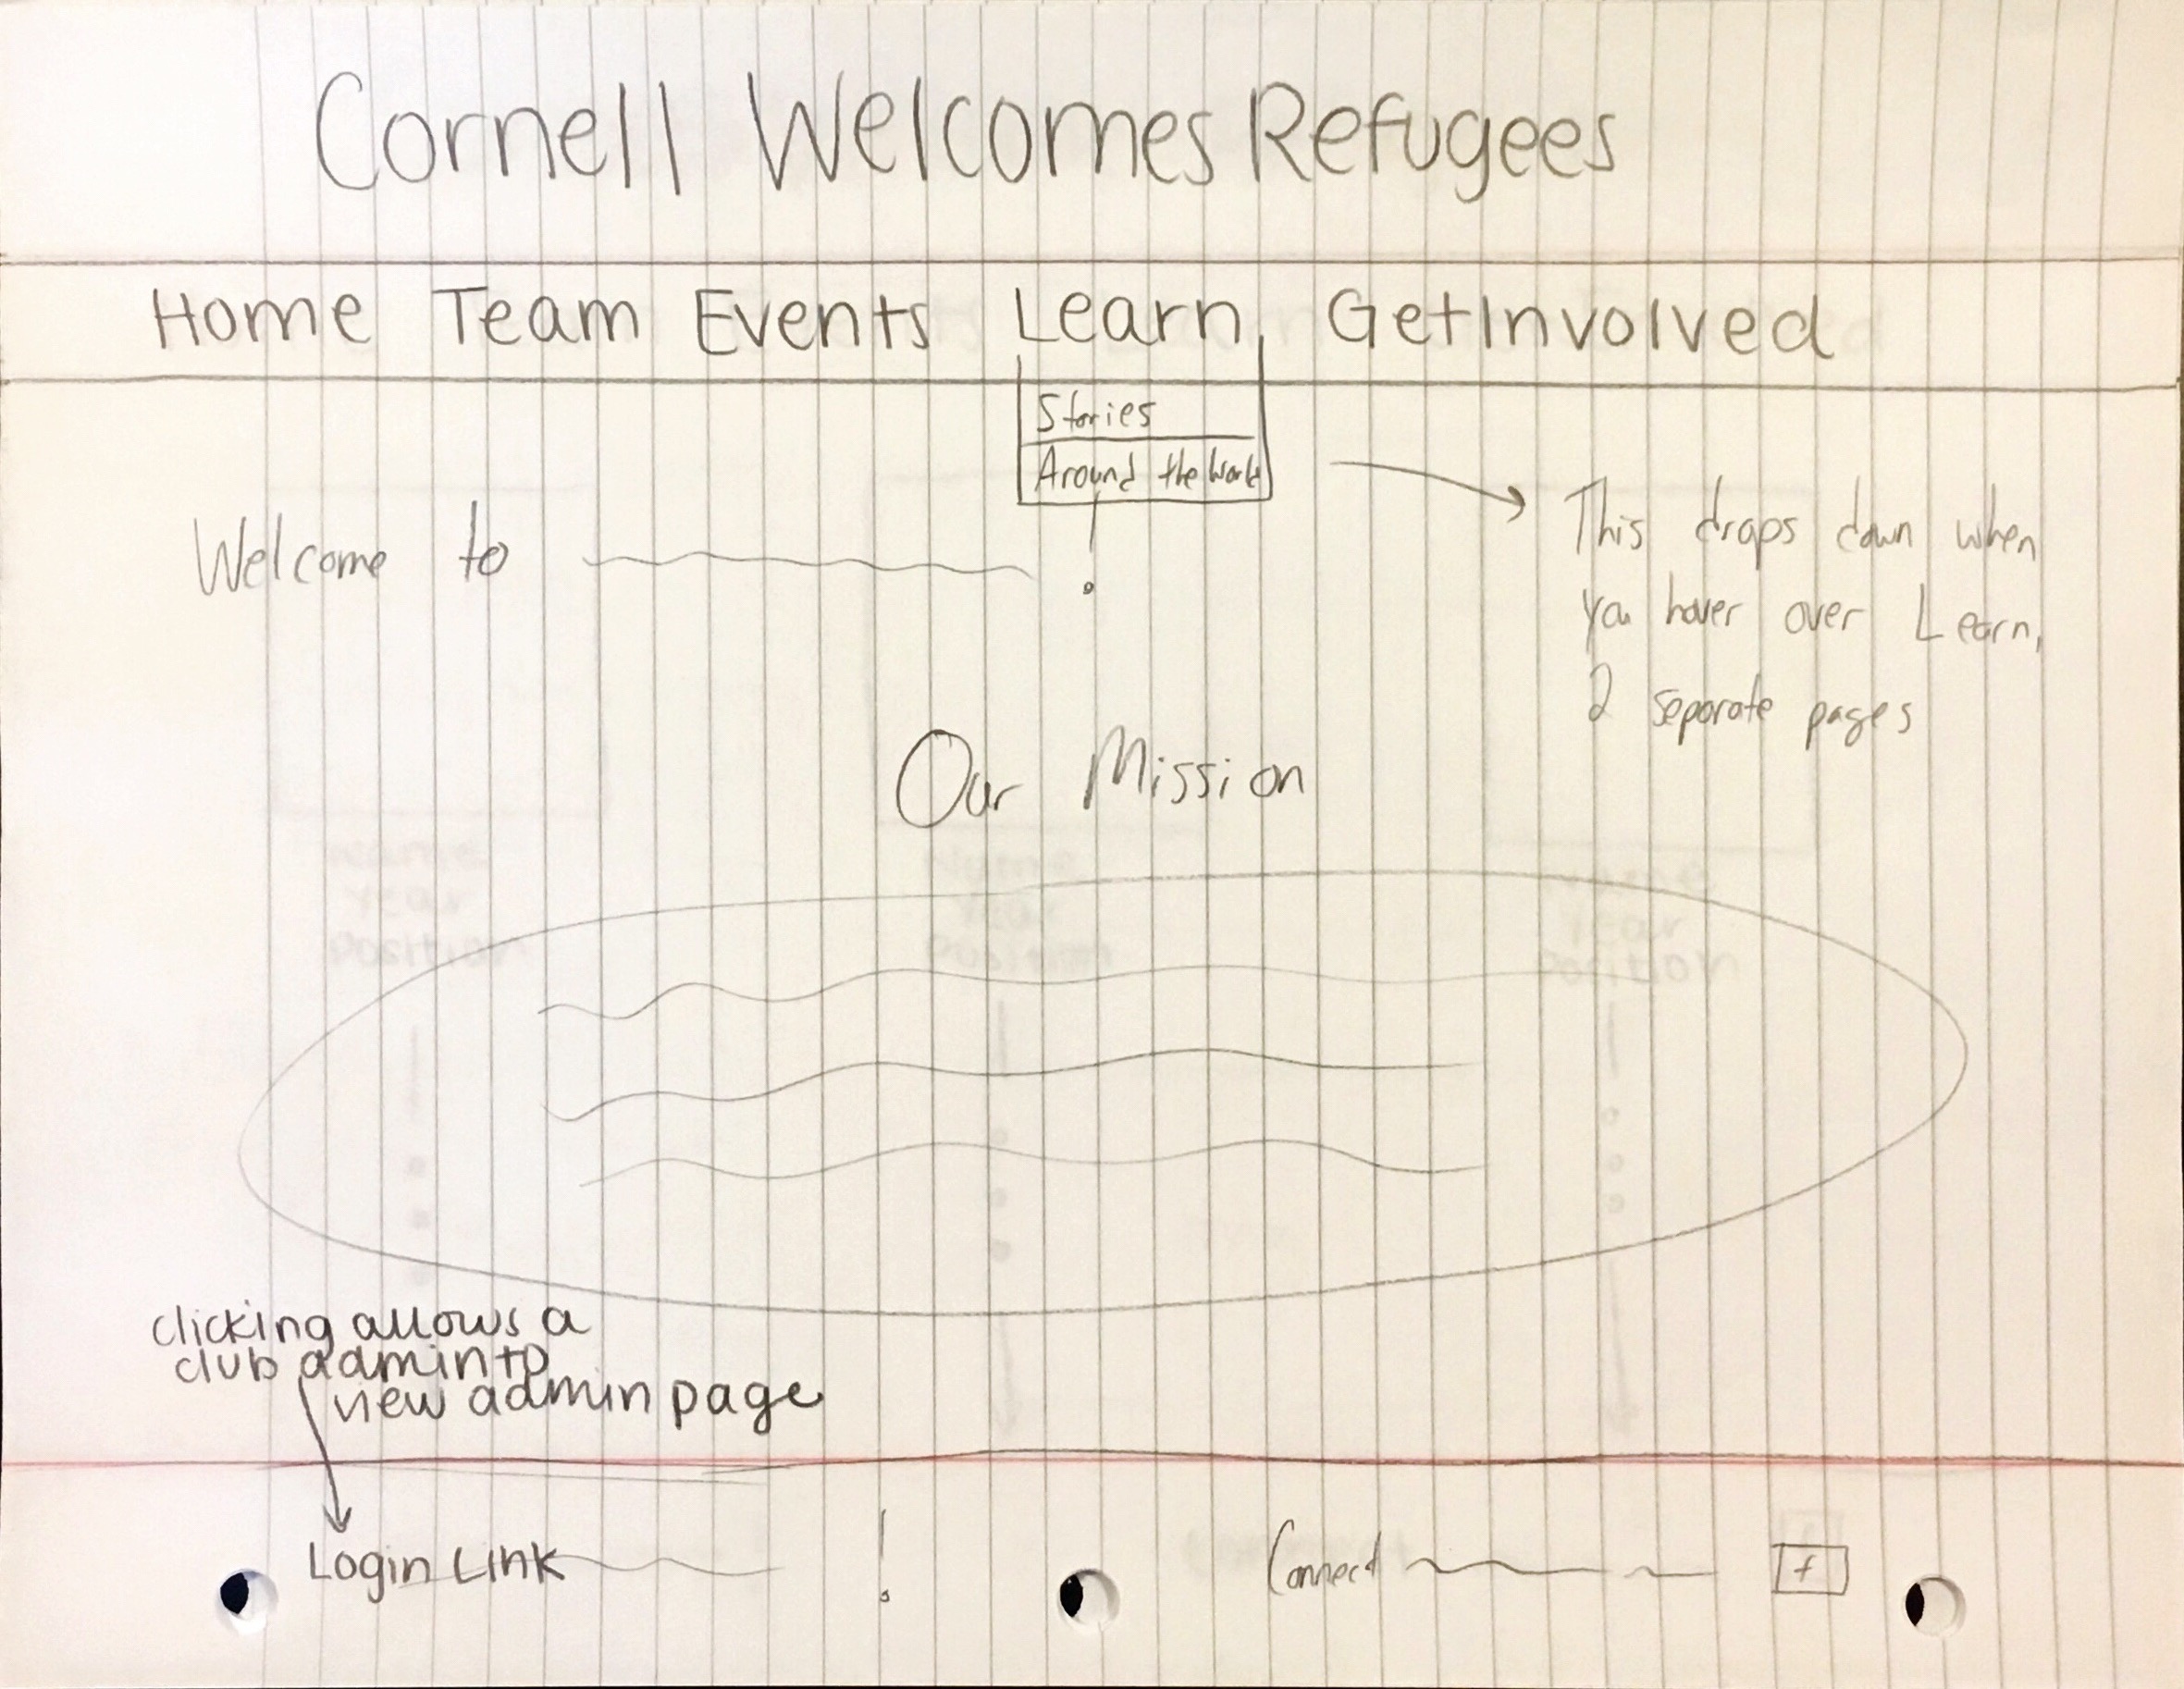 Cornell Welcomes Refugees
Home Team Events Learn GetInvolved
Stories
Around the World
Welcome to !
This drops down when
you hover over Learn,
2 separate pages
Our Mission
clicking allows a
club admin to
view admin page
Login Link !
Connect f